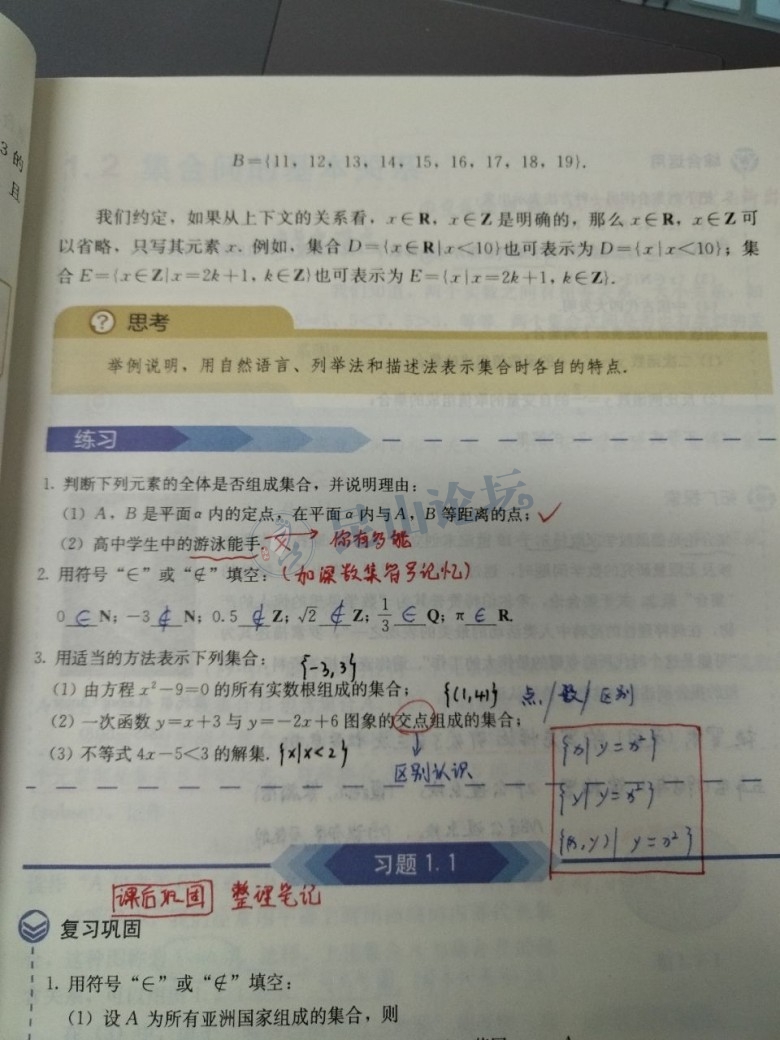 3 的
且
B={11，12，13，14，15，16，17，18，19}.
我们约定，如果从上下文的关系看，x∈R，x∈Z 是明确的，那么 x∈R，x∈Z 可
以省略，只写其元素 x. 例如，集合 D={x∈R|x<10}也可表示为 D={x|x<10}；集
合 E={x∈Z|x=2k+1，k∈Z}也可表示为 E={x|x=2k+1，k∈Z}.
? 思考
举例说明，用自然语言、列举法和描述法表示集合时各自的特点.
练习
1. 判断下列元素的全体是否组成集合，并说明理由：
（1）A，B 是平面α内的定点，在平面α内与A，B等距离的点；✓
（2）高中学生中的游泳能手. × → 你有多能
2. 用符号“∈”或“∉”填空：（加深数集符号记忆）
0 ∈ N；-3 ∉ N；0.5 ∉ Z；√2 ∉ Z；1/3 ∈ Q；π ∈ R.
3. 用适当的方法表示下列集合：
{-3,3}
（1）由方程 x²-9=0 的所有实数根组成的集合； {(1,4)} 点/数/区别
（2）一次函数 y=x+3 与 y=-2x+6 图象的交点组成的集合；
（3）不等式 4x-5<3 的解集. {x|x<2}
区别认识
{x|y=x²}
{y|y=x²}
{(x,y)|y=x²}
习题 1.1
课后巩固 整理笔记
复习巩固
1. 用符号“∈”或“∉”填空：
（1）设 A 为所有亚洲国家组成的集合，则